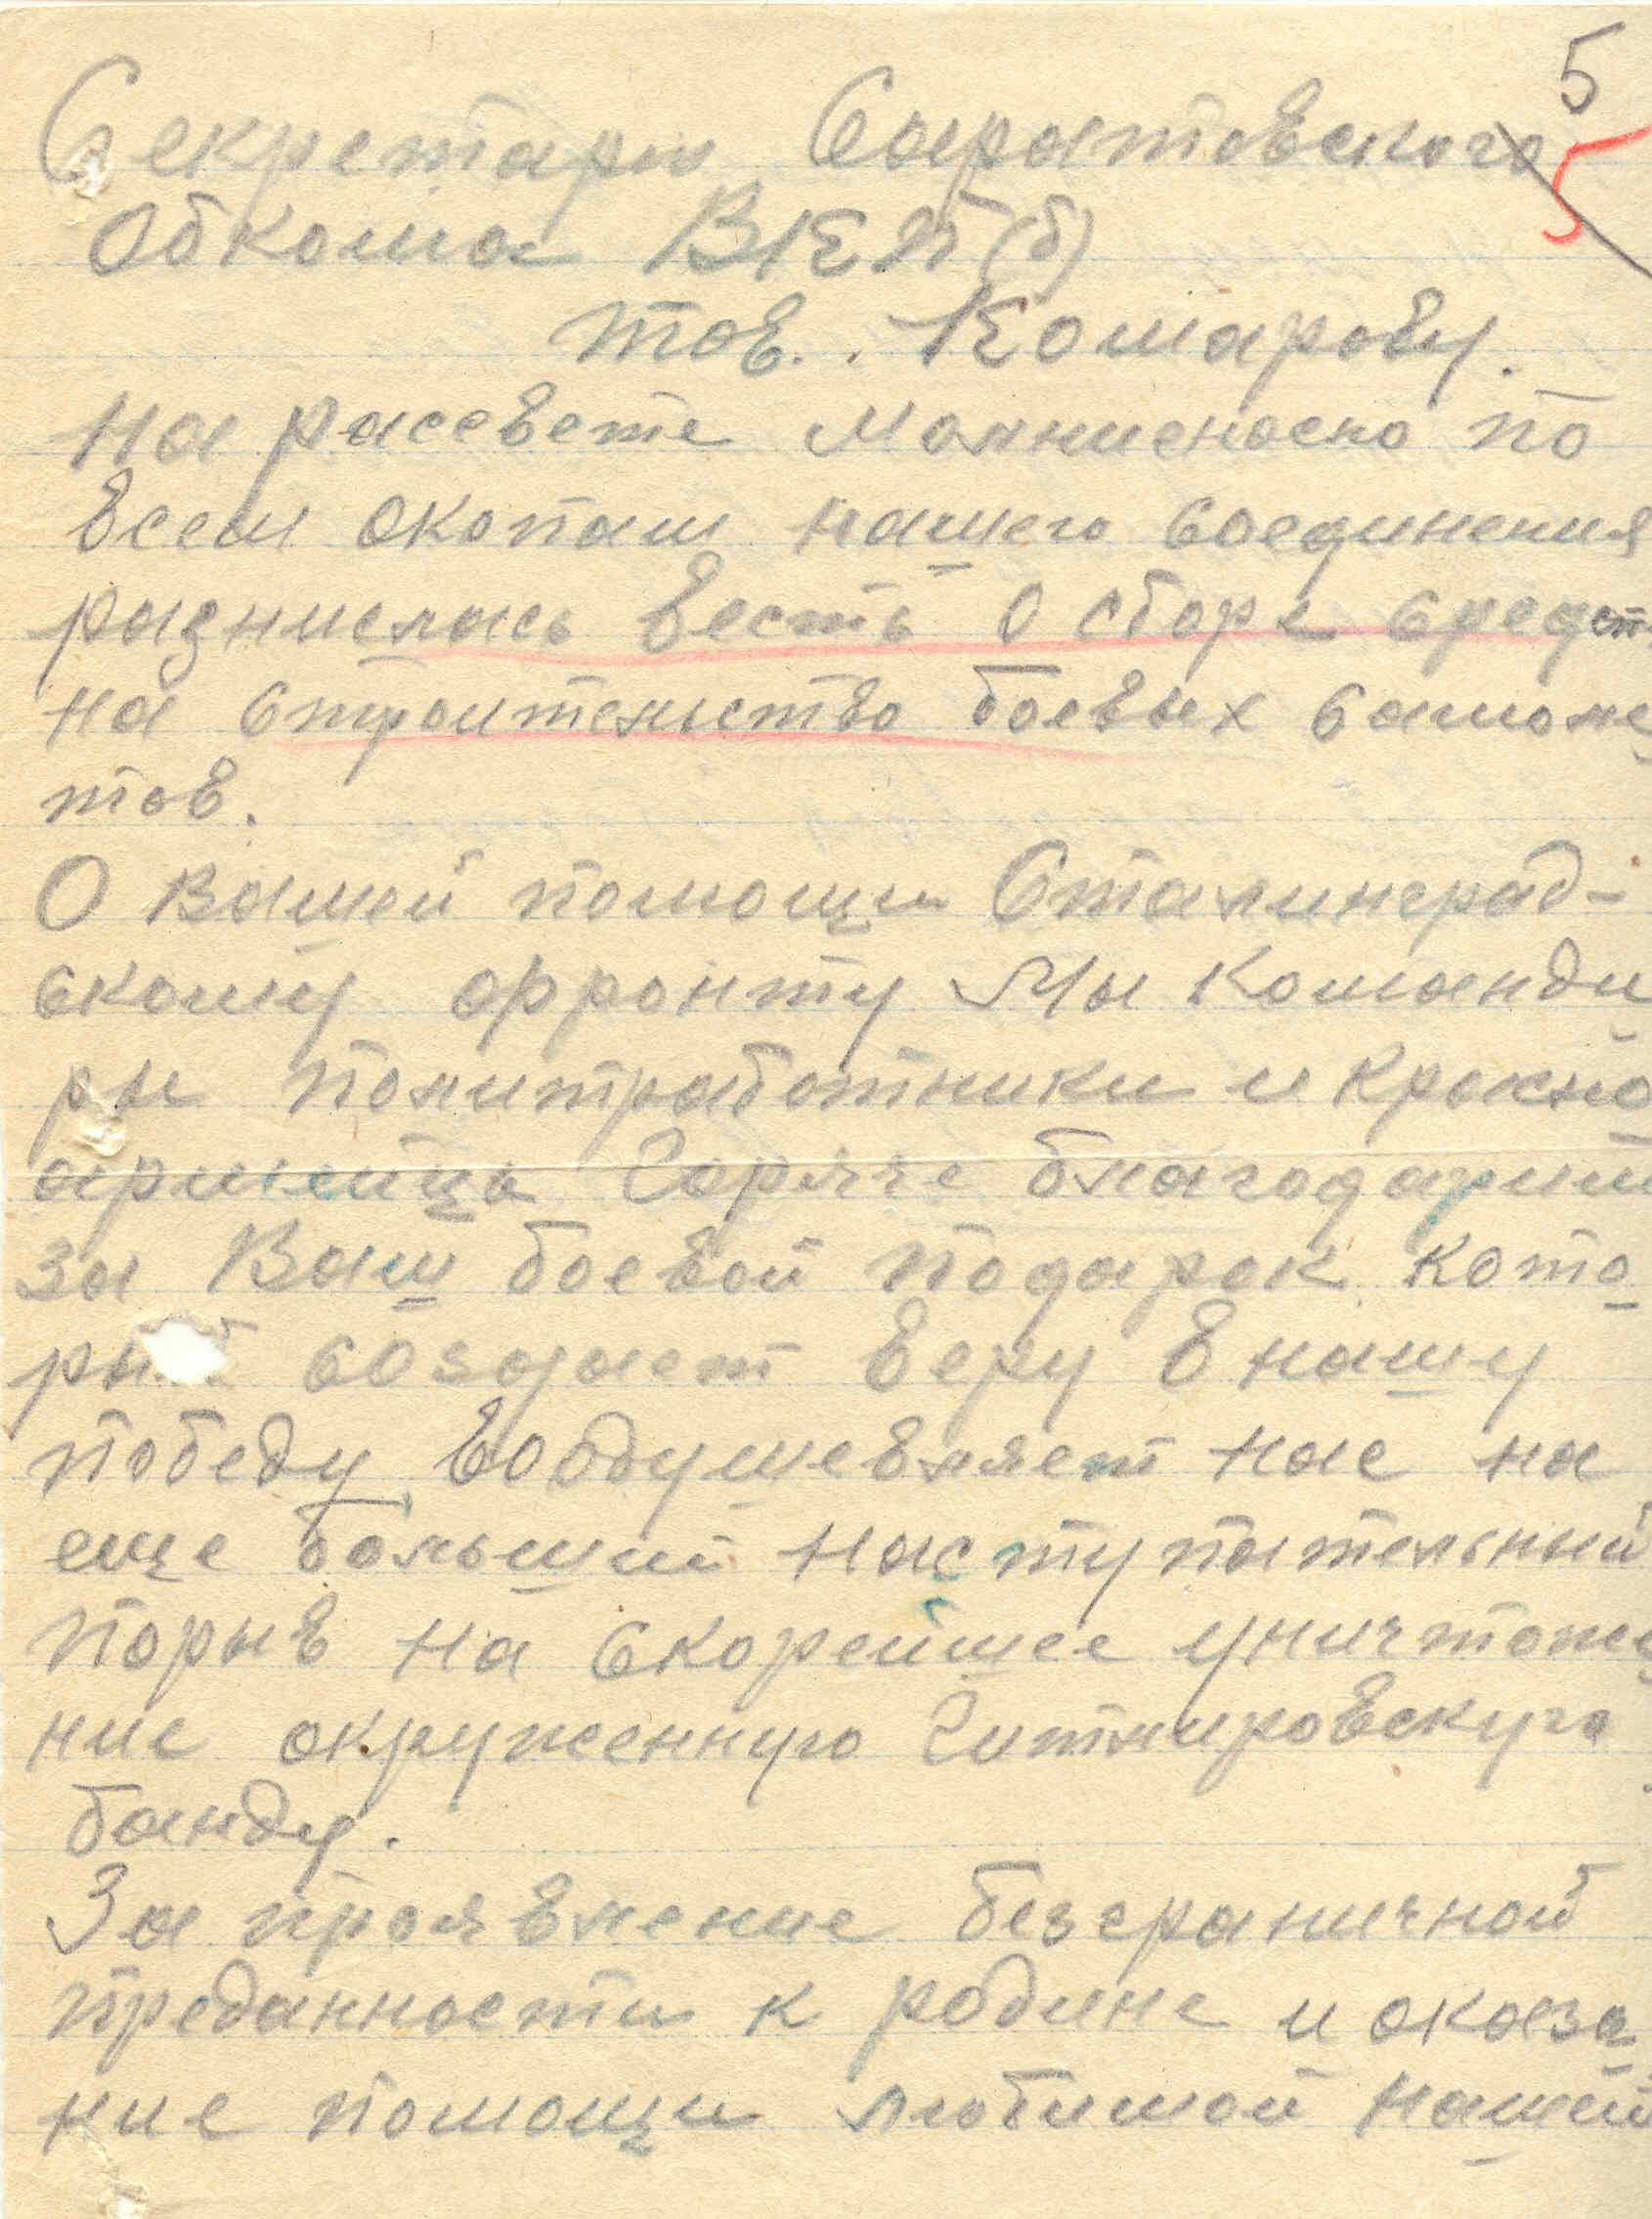 5
Секретарю Саратовского 5
Обкома ВКП(б)
тов. Комарову.
На рассвете Молниеносно по
всем окопам нашего соединения
разнислась весть о сборе средст
на строительство боевых самоле
тов.
О Вашей помощи Сталинград-
скому фронту Мы Команди
ры политработники и Красно
армейцы Горяче благодарим
за Ваш боевой подарок кото
рый создает веру в нашу
победу, воодушевляет нас на
еще больший наступательный
порыв на скорейшее уничтоже
ние окруженную Гитлеровскую
банду.
За проявление безграничной
преданности к родине и оказа
ние помощи любимой нашей